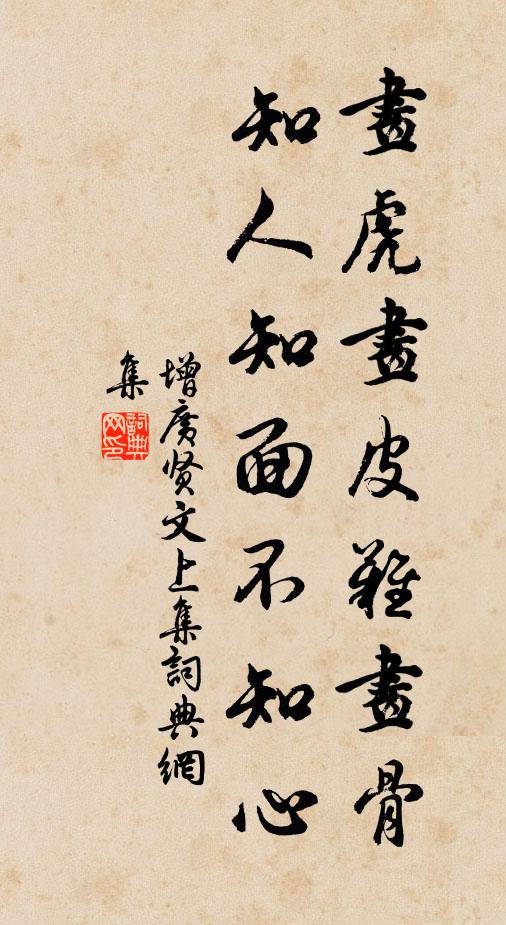 畫虎畫皮難畫骨
知人知面不知心
增廣贤文上集詞典網
集
詞典網印